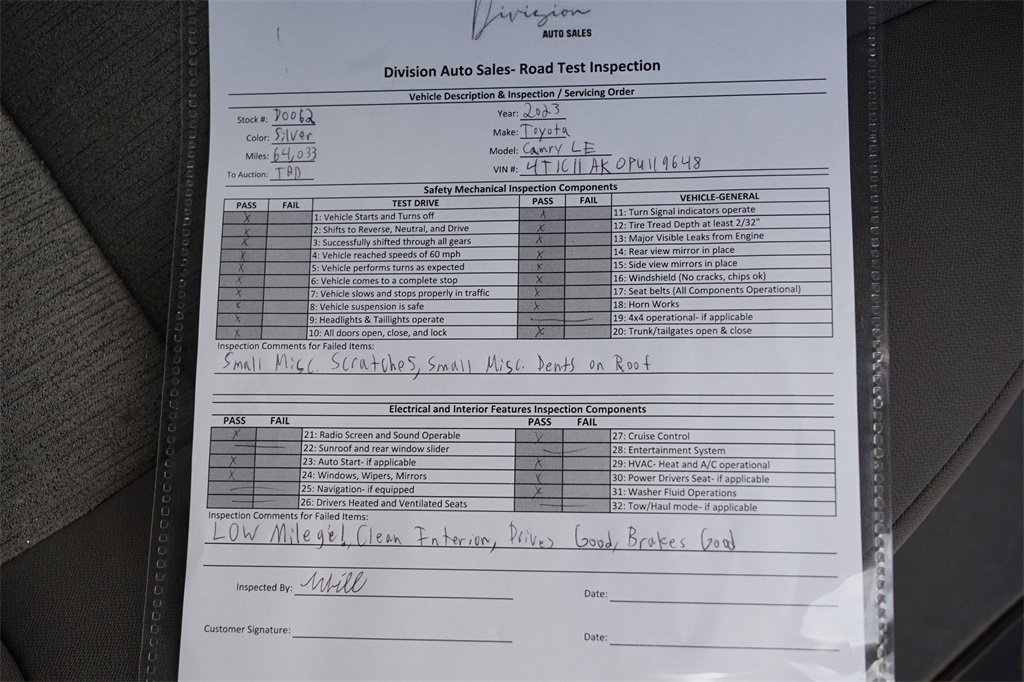 Division
AUTO SALES
Division Auto Sales- Road Test Inspection
Vehicle Description & Inspection / Servicing Order
Stock #: D0062
Year: 2023
Color: Silver
Make: Toyota
Miles: 64,033
Model: Camry LE
To Auction: TBD
VIN #: 4T1C11AK0PU119648
Safety Mechanical Inspection Components
PASS FAIL TEST DRIVE PASS FAIL VEHICLE-GENERAL
X 1: Vehicle Starts and Turns off X 11: Turn Signal indicators operate
X 2: Shifts to Reverse, Neutral, and Drive X 12: Tire Tread Depth at least 2/32"
X 3: Successfully shifted through all gears X 13: Major Visible Leaks from Engine
X 4: Vehicle reached speeds of 60 mph X 14: Rear view mirror in place
X 5: Vehicle performs turns as expected X 15: Side view mirrors in place
X 6: Vehicle comes to a complete stop X 16: Windshield (No cracks, chips ok)
X 7: Vehicle slows and stops properly in traffic X 17: Seat belts (All Components Operational)
X 8: Vehicle suspension is safe X 18: Horn Works
X 9: Headlights & Taillights operate 19: 4x4 operational- if applicable
X 10: All doors open, close, and lock X 20: Trunk/tailgates open & close
Inspection Comments for Failed Items:
Small Misc. Scratches, Small Misc. Dents on Roof
Electrical and Interior Features Inspection Components
PASS FAIL PASS FAIL
X 21: Radio Screen and Sound Operable X 27: Cruise Control
22: Sunroof and rear window slider 28: Entertainment System
X 23: Auto Start- if applicable X 29: HVAC- Heat and A/C operational
X 24: Windows, Wipers, Mirrors X 30: Power Drivers Seat- if applicable
25: Navigation- if equipped X 31: Washer Fluid Operations
26: Drivers Heated and Ventilated Seats 32: Tow/Haul mode- if applicable
Inspection Comments for Failed Items:
LOW Milege!, Clean Interion, Drives Good, Brakes Good
Inspected By: Will
Date:
Customer Signature:
Date: